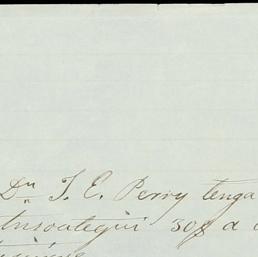 Dn. T. E. Perry tenga
Ansoategui 30$ a